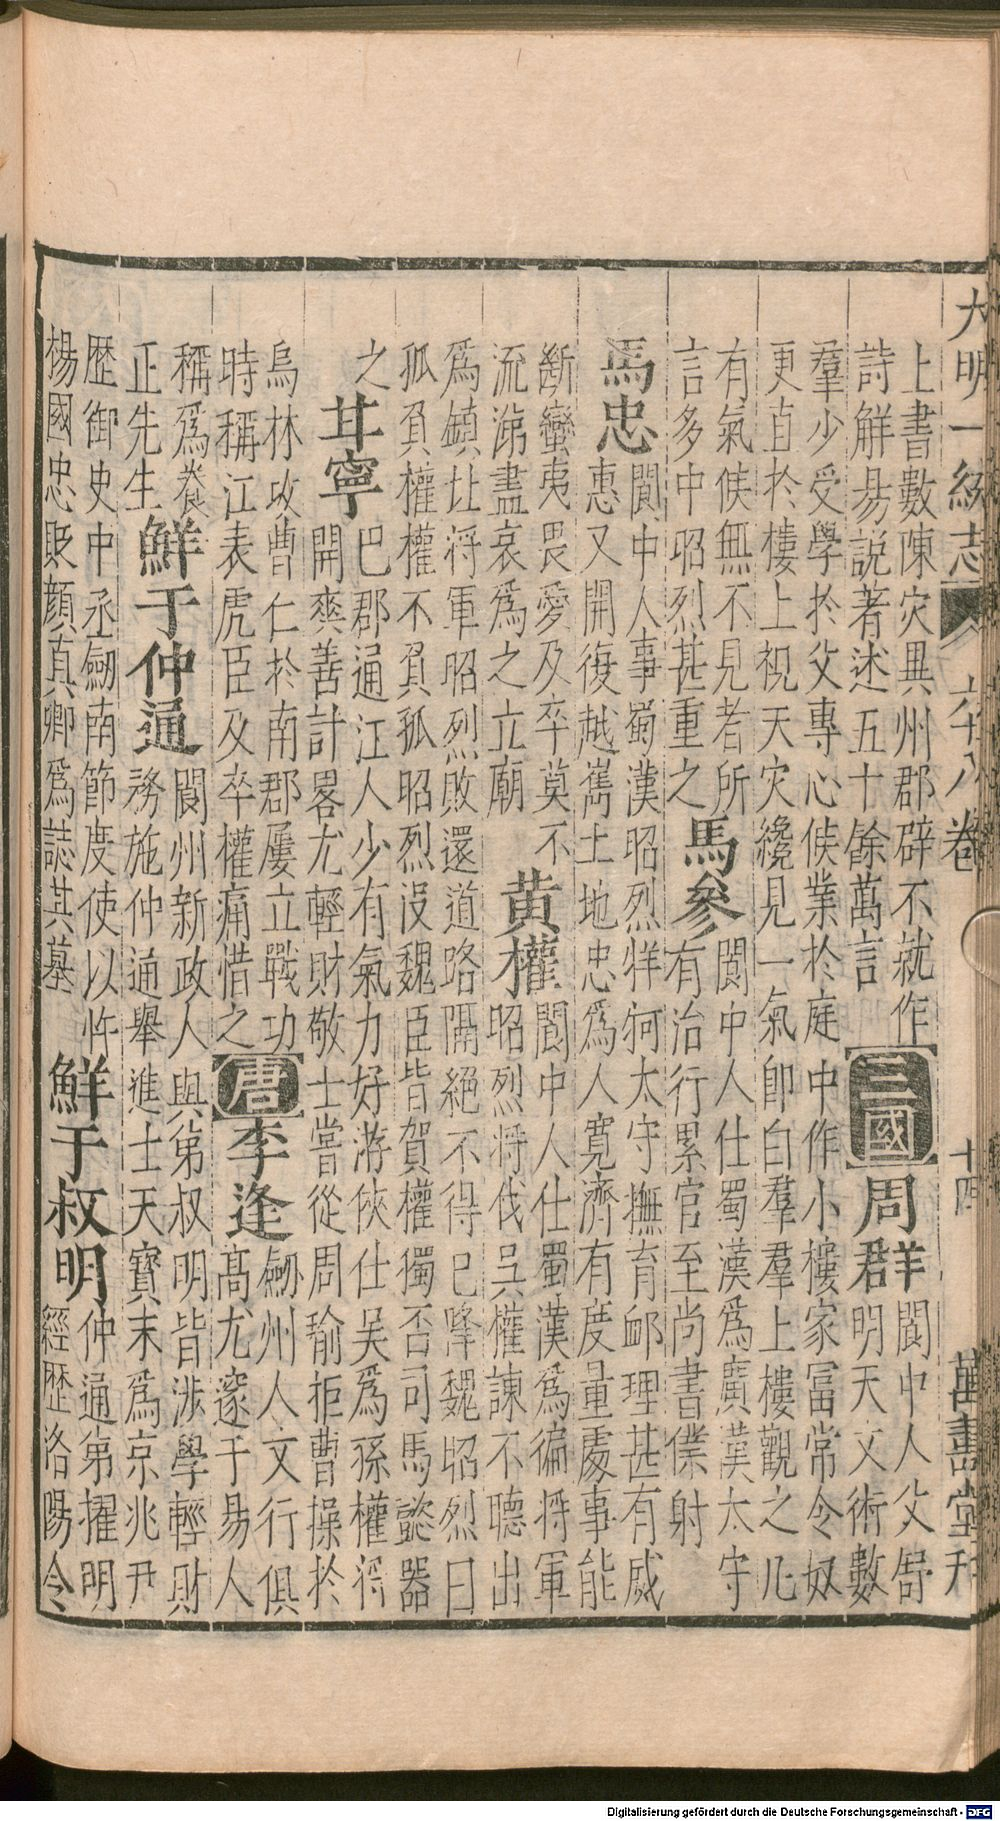 大明一統志 六十八卷 十四 萬壽堂刊
上書數陳灾異州郡辟不就作
詩解易說著述五十餘萬言
三國
周群
閬中人父舒
明天文術數
羣少受學於父專心候業於庭中作小樓家冨常令奴
更直於樓上視天灾纔見一氣卽白羣羣上樓觀之凢
有氣候無不見者所
言多中昭烈甚重之
馬參
閬中人仕蜀漢爲廣漢太守
有治行累官至尚書僕射
馬忠
閬中人事蜀漢昭烈牂牁太守撫育䘏理甚有威
惠又開復越嶲土地忠爲人寬濟有度量處事能
斷蠻夷畏愛及卒莫不
流涕盡哀爲之立廟
黄權
閬中人仕蜀漢爲徧將軍
昭烈將伐吳權諫不聽出
爲鎮北將軍昭烈敗還道路隔絕不得已降魏昭烈曰
孤負權權不負孤昭烈沒魏臣皆賀權獨否司馬懿器
之
甘寧
巴郡通江人少有氣力好游俠仕吴爲孫權將
開爽善計畧尤輕財敬士嘗從周瑜拒曹操於
烏林攻曹仁於南郡屢立戰功
時稱江表虎臣及卒權痛惜之
唐
李逢
劔州人文行俱
髙尤邃于易人
稱爲養
正先生
鮮于仲通
閬州新政人與弟叔明皆涉學輕財
務施仲通舉進士天寳末爲京兆尹
歴御史中丞劔南節度使以忤
楊國忠貶顔真卿爲誌其墓
鮮于叔明
仲通弟擢明
經歴洛陽令
Digitalisierung gefördert durch die Deutsche Forschungsgemeinschaft - DFG